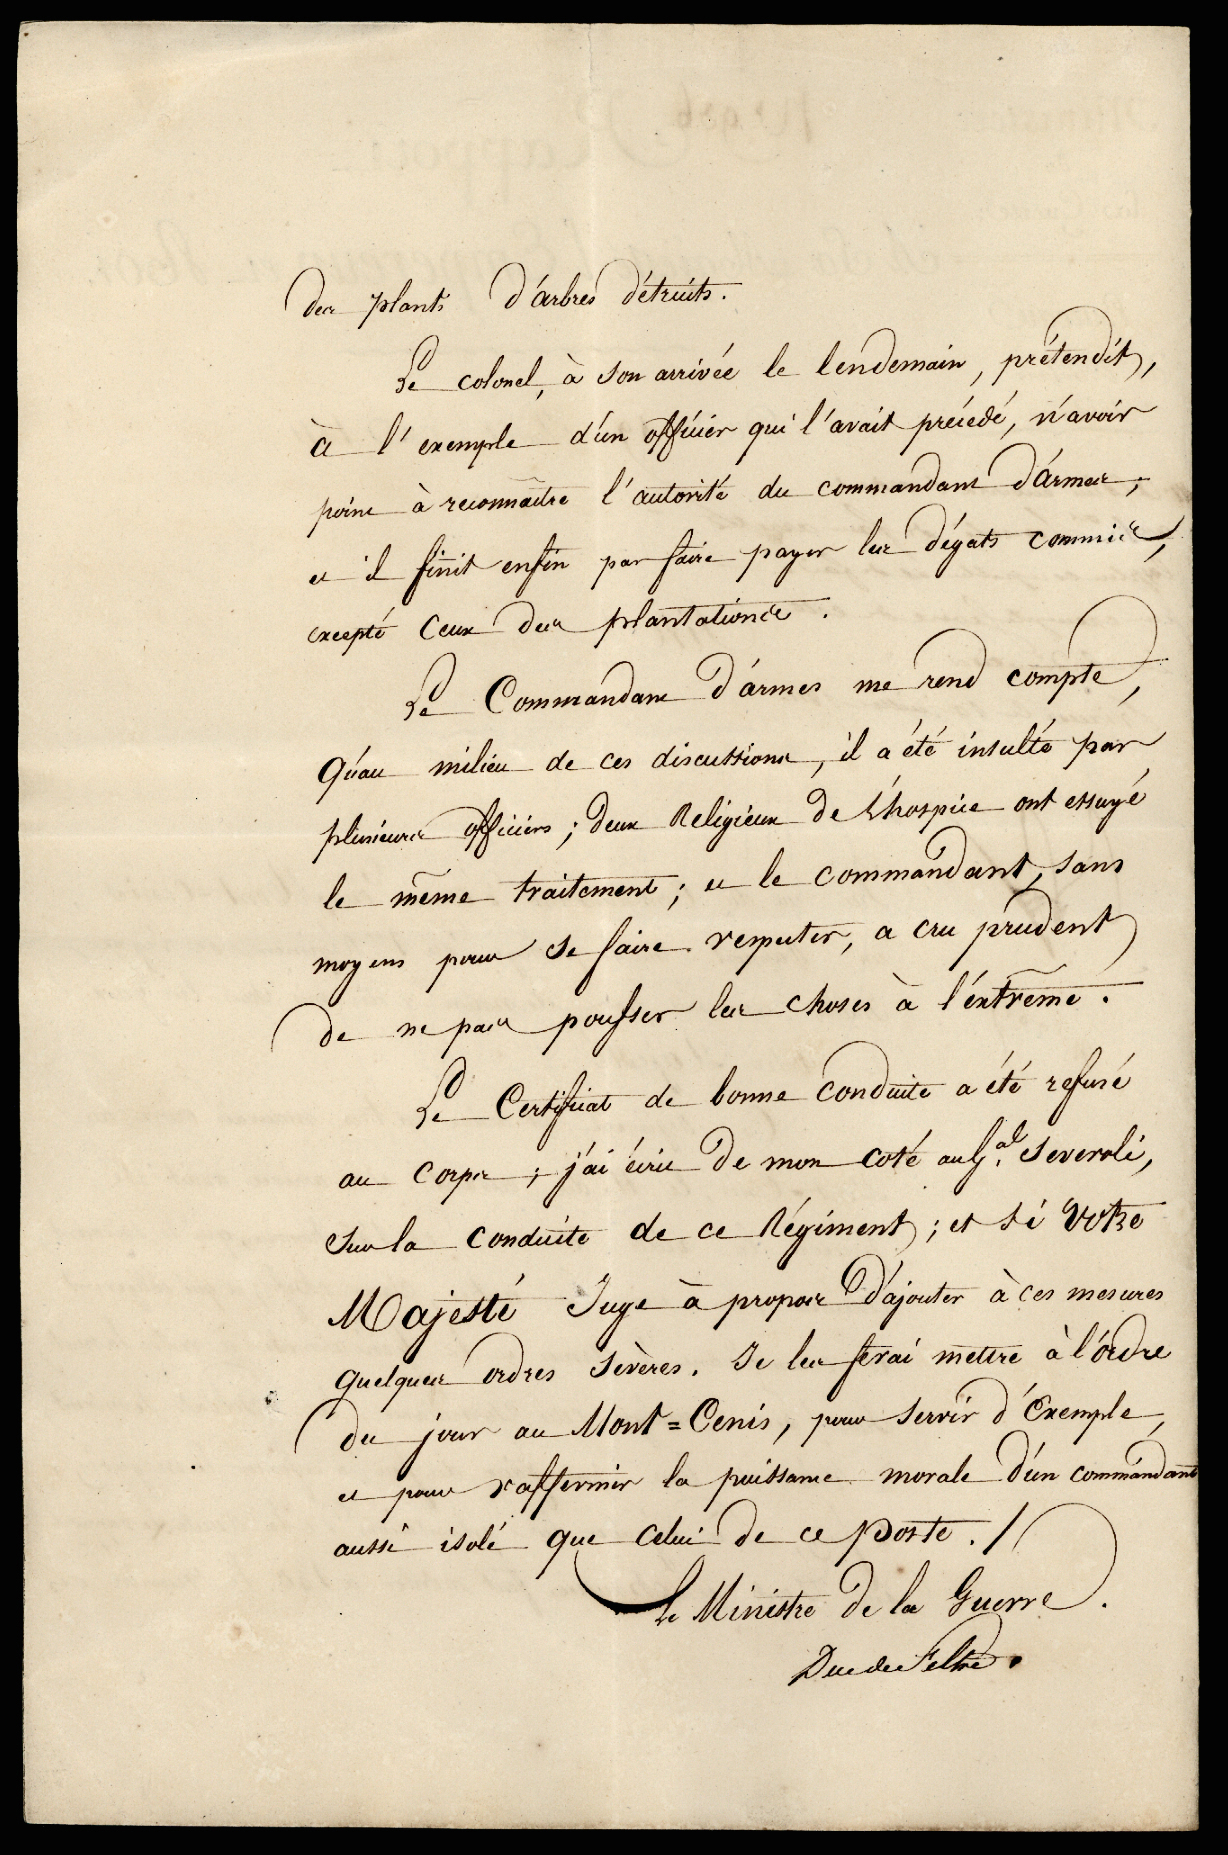 des plants d'arbres détruits.
Le colonel, à son arrivée le lendemain, prétendit,
à l'exemple d'un officier qui l'avait précédé, n'avoir
point à reconnaître l'autorité du commandant d'armes,
et il finit enfin par faire payer les dégats commis,
excepté ceux des plantations.
Le Commandant d'armes me rend compte,
qu'au milieu de ces discussions, il a été insulté par
plusieurs officiers ; deux Religieux de L'hospice ont essuyé
le même traitement ; et le commandant, sans
moyens pour se faire respecter, a cru prudent
de ne pas pousser les choses à l'éxtrême.
Le Certificat de bonne conduite a été refusé
au corps ; j'ai écrit de mon coté au G.al Severoli,
sur la conduite de ce Régiment ; et si Votre
Majesté Juge à propos d'ajouter à ces mesures
quelques ordres sévères. Je les ferai mettre à l'ordre
du jour au Mont=Cenis, pour servir d'Exemple,
et pour raffermir la puissance morale d'un commandant
aussi isolé que celui de ce poste ./
Le Ministre de la Guerre.
Duc de Feltre.